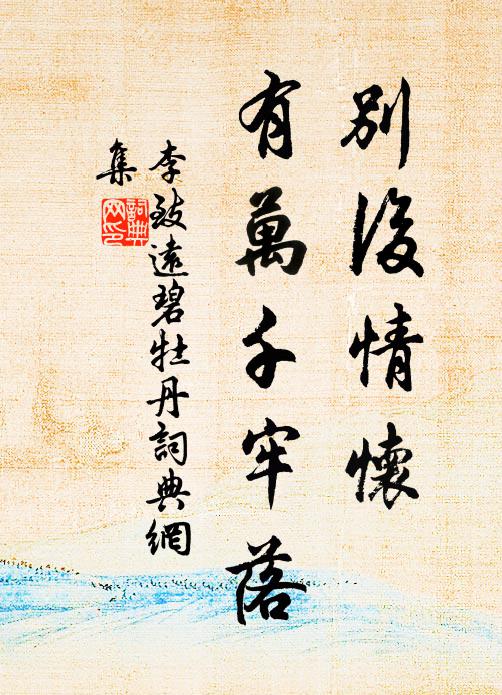 別後情懷
有萬千牢落
李致遠碧牡丹詞典網
集
詞典
网印